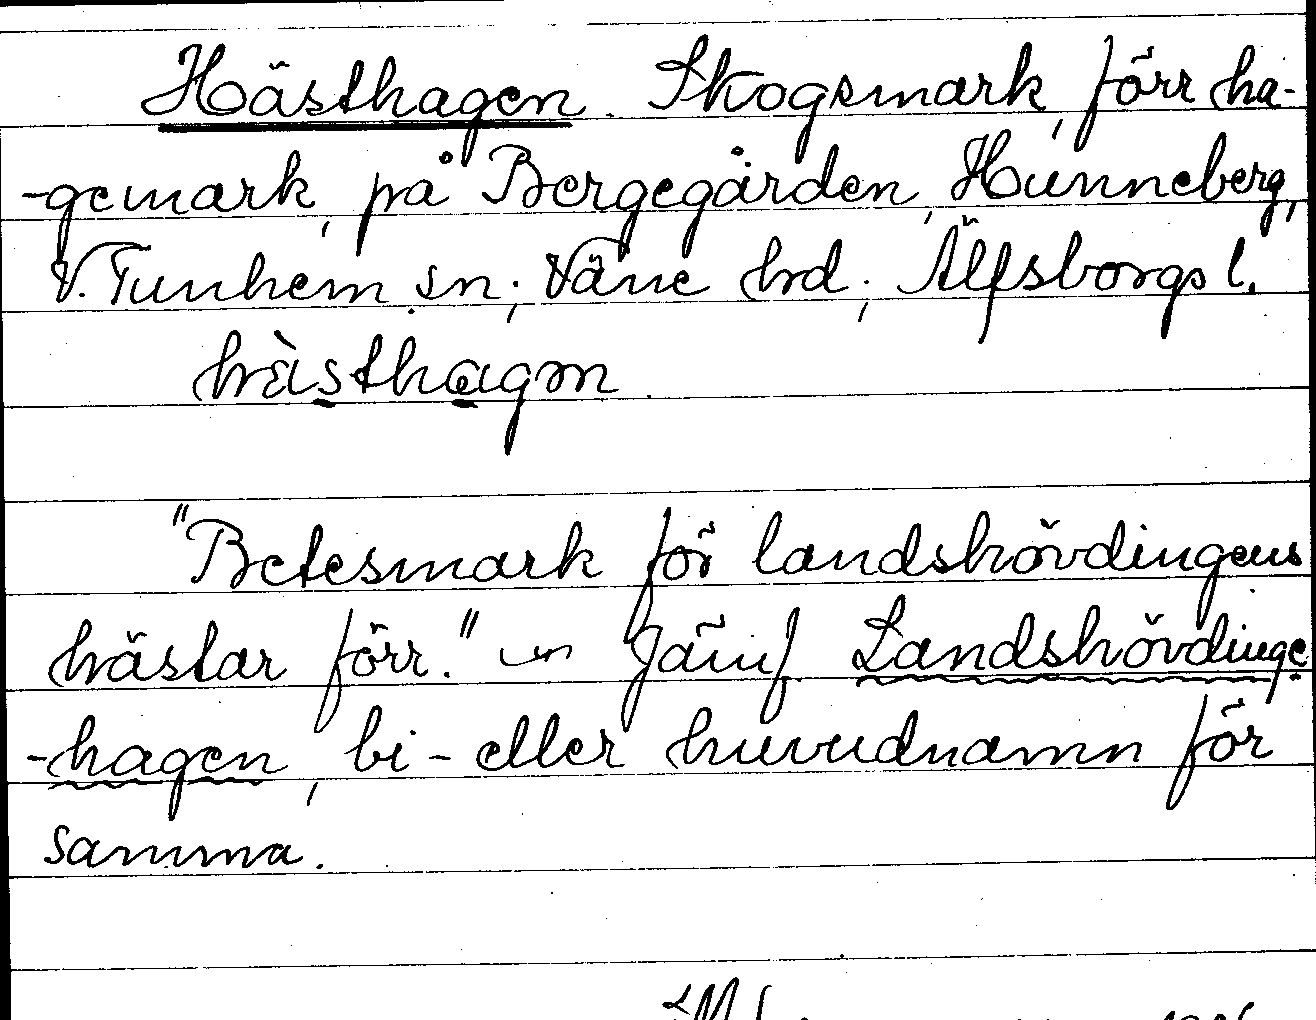 Hästhagen. Skogsmark, förr ha-
-gemark, på Bergegården, Hunneberg,
V. Tunhem sn; Väne hrd; Älfsborgs l.
hàsthagən.
"Betesmark för landshövdingens
hästar förr." ~ Jämf. Landshövdinge-
-hagen, bi- eller huvudnamn för
samma.